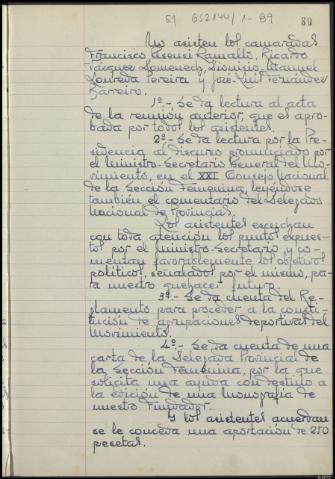 51 GS2144/1-89
80
No asisten los camaradas
Francisco Asensi Ramallo, Ricardo
Vázquez Domenech, Dionisio Manuel
Loureda Pereira y José-Luis Fernández
Barreiro.
1º.- Se da lectura al acta
de la reunión anterior, que es apro-
bada por todos los asistentes.
2º.- Se da lectura por la Pre-
sidencia al discurso pronunciado por
el Ministro-Secretario General del Mo-
vimiento, en el XXI Consejo Nacional
de la Sección Femenina, leyéndose
también el comentario del Delegado
Nacional de Provincias.
Los asistentes escuchan
con toda atención los puntos expues-
tos por el Ministro-Secretario y co-
mentan favorablemente los objetivos
políticos, señalados por el mismo, pa-
ra nuestro quehacer futuro.
3º.- Se da cuenta del Re-
glamento para proceder a la consti-
tución de agrupaciones deportivas del
Movimiento.
4º.- Se da cuenta de una
carta de la Delegada Provincial de
la Sección Femenina, por la que
solicita una ayuda con destino a
la edición de una monografía de
nuestro Fundador.
Y los asistentes acuerdan
se le conceda una aportación de 250
pesetas.